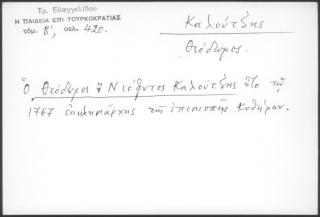 Τρ. Εὐαγγελίδου
Η ΠΑΙΔΕΙΑ ΕΠΙ ΤΟΥΡΚΟΚΡΑΤΙΑΣ
τόμ. Β', σελ. 420.
Καλούτζης
Θεόδωρος.
Ὁ Θεόδωρος ἢ Νεόφυτος Καλούτζης ἦτο τῷ
1767 ἐκκλησιάρχης τῆς ἐπισκοπῆς Κυθήρων.